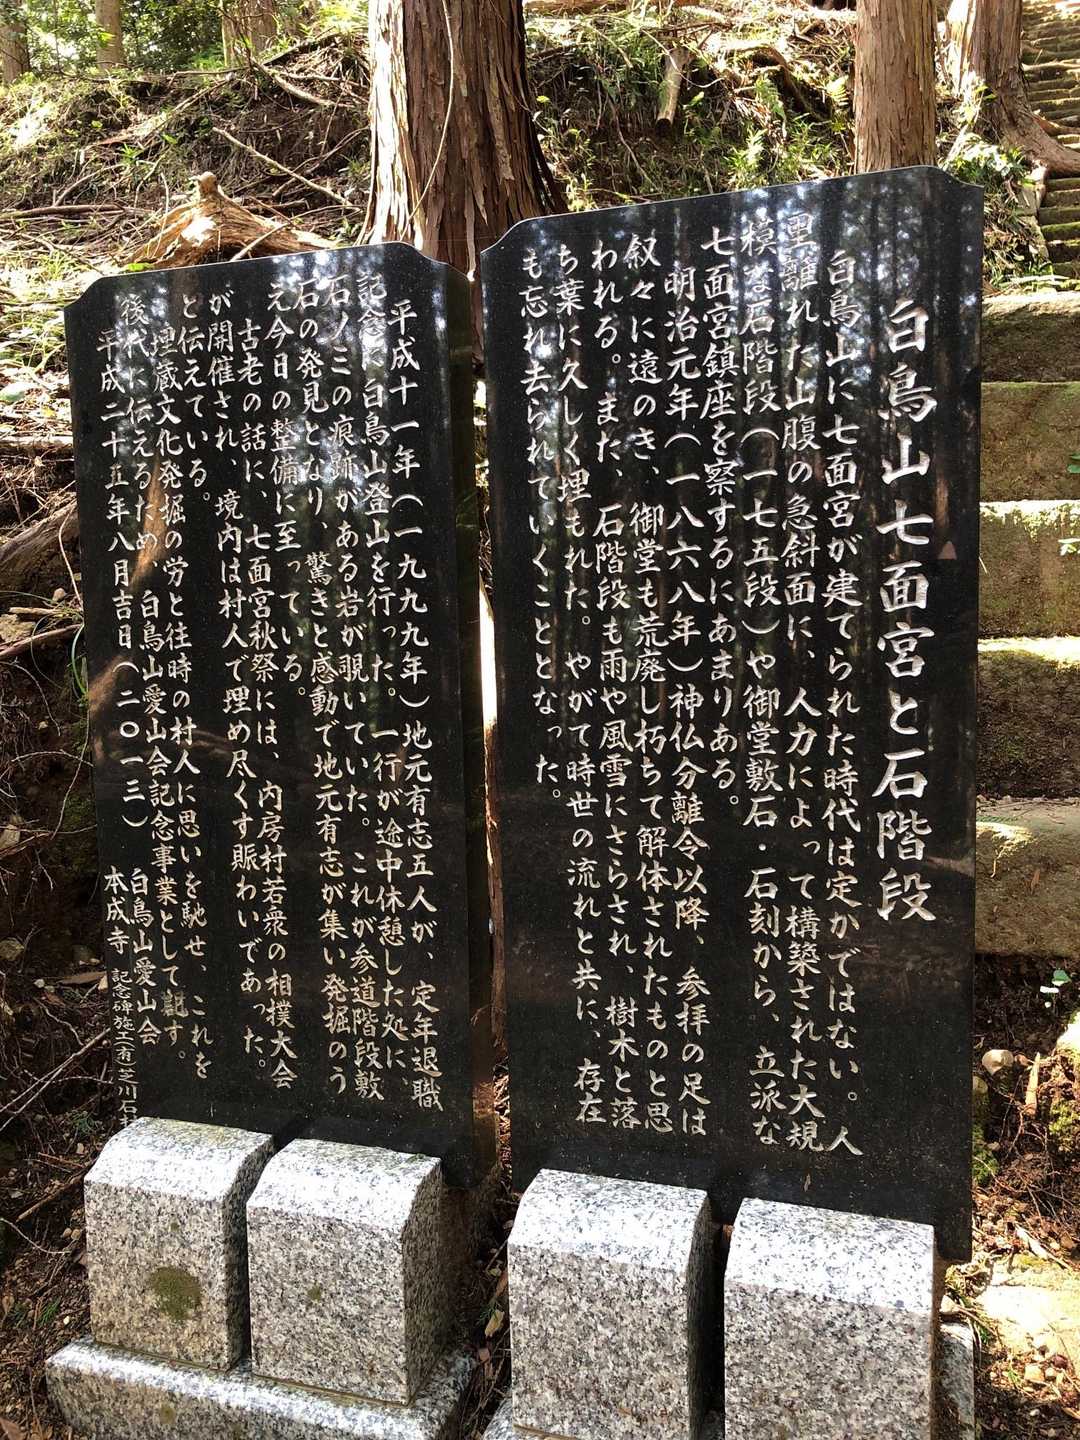 白鳥山七面宮と石階段
白鳥山に七面宮が建てられた時代は定かではない。人
里離れた山腹の急斜面に、人力によって構築された大規
模な石階段（一七五段）や御堂敷石・石刻から、立派な
七面宮鎮座を察するにあまりある。
明治元年（一八六八年）神仏分離令以降、参拝の足は
叙々に遠のき、御堂も荒廃し朽ちて解体されたものと思
われる。また、石階段も雨や風雪にさらされ、樹木と落
ち葉に久しく埋もれた。やがて時世の流れと共に、存在
も忘れ去られていくこととなった。
平成十一年（一九九九年）地元有志五人が、定年退職
記念に白鳥山登山を行った。一行が途中休憩した処に、
石ノミの痕跡がある岩が覗いていた。これが参道階段敷
石の発見となり、驚きと感動で地元有志が集い発掘のう
え今日の整備に至っている。
古老の話に、七面宮秋祭には、内房村若衆の相撲大会
が開催され、境内は村人で埋め尽くす賑わいであった。
と伝えている。
埋蔵文化発掘の労と往時の村人に思いを馳せ、これを
後代に伝えるため、白鳥山愛山会記念事業として記す。
平成二十五年八月吉日（二〇一三）
白鳥山愛山会
本成寺
記念碑施工（有）芝川石材